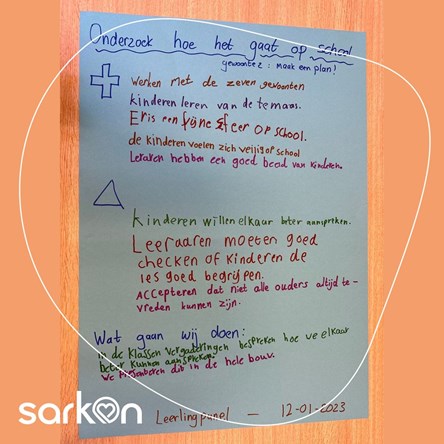 Onderzoek hoe het gaat op school
gewoonte 2 : maak een plan!
Werken met de zeven gewoonten
kinderen leren van de temaas.
Er is een fijne sfeer op school.
de kinderen voelen zich veilig op school
Leraren hebben een goed beeld van kinderen.
kinderen willen elkaar beter aanspreken.
Leeraaren moeten goed
checken of kinderen de
les goed begrijpen.
Accepteren dat niet alle ouders altijd te-
vreden kunnen zijn.
Wat gaan wij doen:
in de klassen vergaderingen bespreken hoe we elkaar
beter kunnen aanspreken.
We presenteren dit in de hele bouw.
Leerlingpanel — 12-01-2023
sarkon